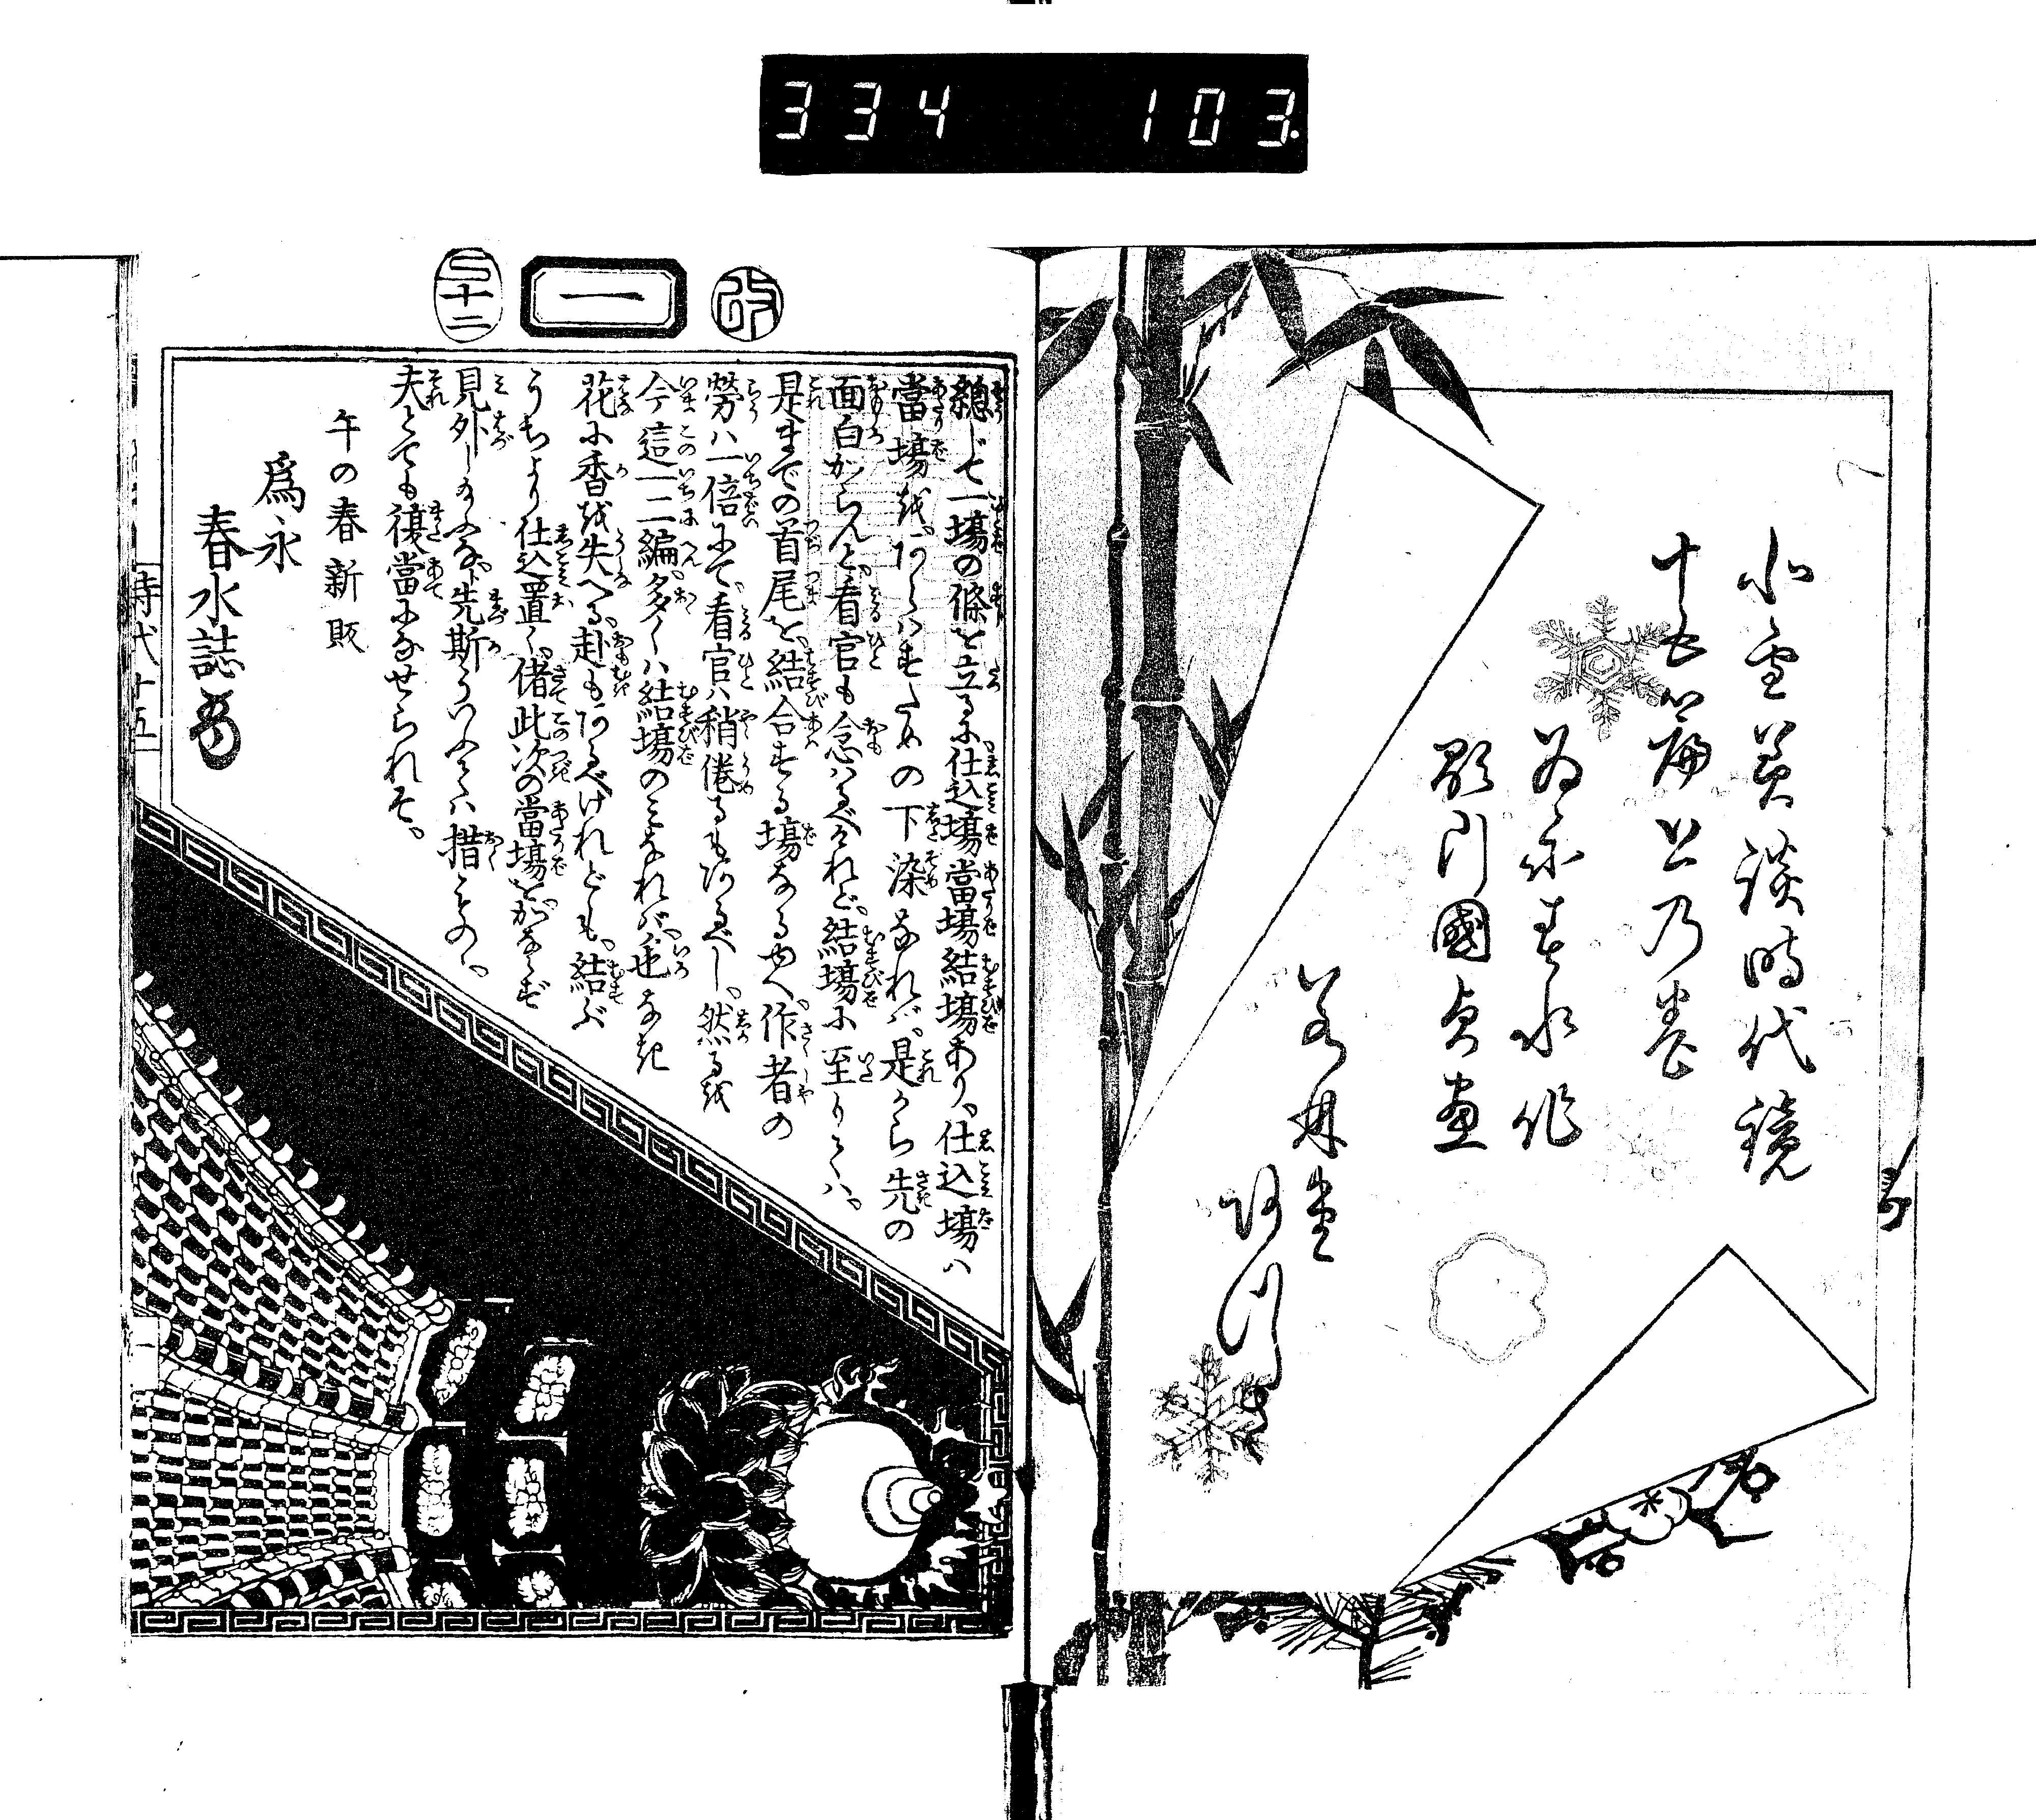 334 103.
北雪美談時代鏡
十五編上乃巻
為永春水作
歌川國貞画
若林堂
改
一
巳十二
總じて一場の條を立るに仕込場當場結場あり、仕込場ハ
當場を、あらハすための下染なれバ、是から先の
面白からんと、看官も念ハるべけれど、結場に至りてハ、
是までの首尾を、結合する場なるゆへ、作者の
勞ハ一倍にて、看官ハ稍倦るもあるべし、然るを
今這一二編、多くハ結場のミなれバ、色なき
花に香を失へる、赴もあるべけれども、結ぶ
うちより仕込置く、偖此次の當場をバ、かならず
見外し給ふなト、先斯うハいふてハ措ものゝ、
夫とても復當になせられそ。
午の春新販
爲永
春水誌
時代十五
一